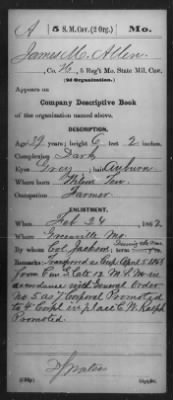 A | 5 S. M. Cav. (2 Org.) | Mo.
James M. Allen
, Co. , 5 Reg't Mo. State Mil. Cav.
(2d Organization.)
Appears on
Company Descriptive Book
of the organization named above.
DESCRIPTION.
Age 29 years; height 6 feet 2 inches.
Complexion Dark
Eyes Gray; hair Auburn
Where born Ten
Occupation Farmer
ENLISTMENT.
When Feb 24, 1862
Where Greenville Mo
By whom Col Jackson; term
Remarks: as Corp April 5 1863
from Co. E 12 M. S. M. in
accordance with General Order
no 5 as 7 Corporal Promoted
to 4 Corpl in place C W
Promoted.
Copyist.